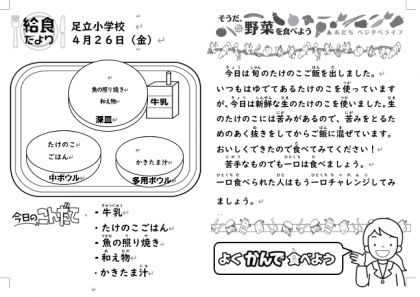 給食だより
足立小学校
4月26日（金）
魚の照り焼き
和え物
深皿
牛乳
たけのこ
ごはん
中ボウル
かきたま汁
多用ボウル
今日のこんだて
・牛乳
・たけのこごはん
・魚の照り焼き
・和え物
・かきたま汁
そうだ、野菜を食べよう
あだち ベジタベライフ
今日は旬のたけのこご飯を出しました。
いつもはゆでてあるたけのこを使っています
が、今日は新鮮な生のたけのこを使いました。生
のたけのこには苦みがあるので、苦みをとるた
めのあく抜きをしてからご飯に混ぜています。
おいしくできたので食べてみてください！
苦手なものでも一口は食べましょう。
一口食べられた人はもう一口チャレンジしてみ
ましょう。
よくかんで食べよう